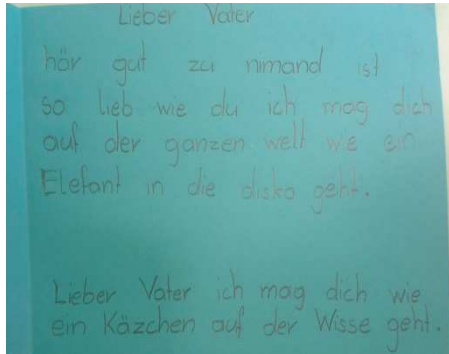 Lieber Vater
hör gut zu nimand ist
so lieb wie du ich mag dich
auf der ganzen welt wie ein
Elefant in die disko geht.
Lieber Vater ich mag dich wie
ein Käzchen auf der Wisse geht.